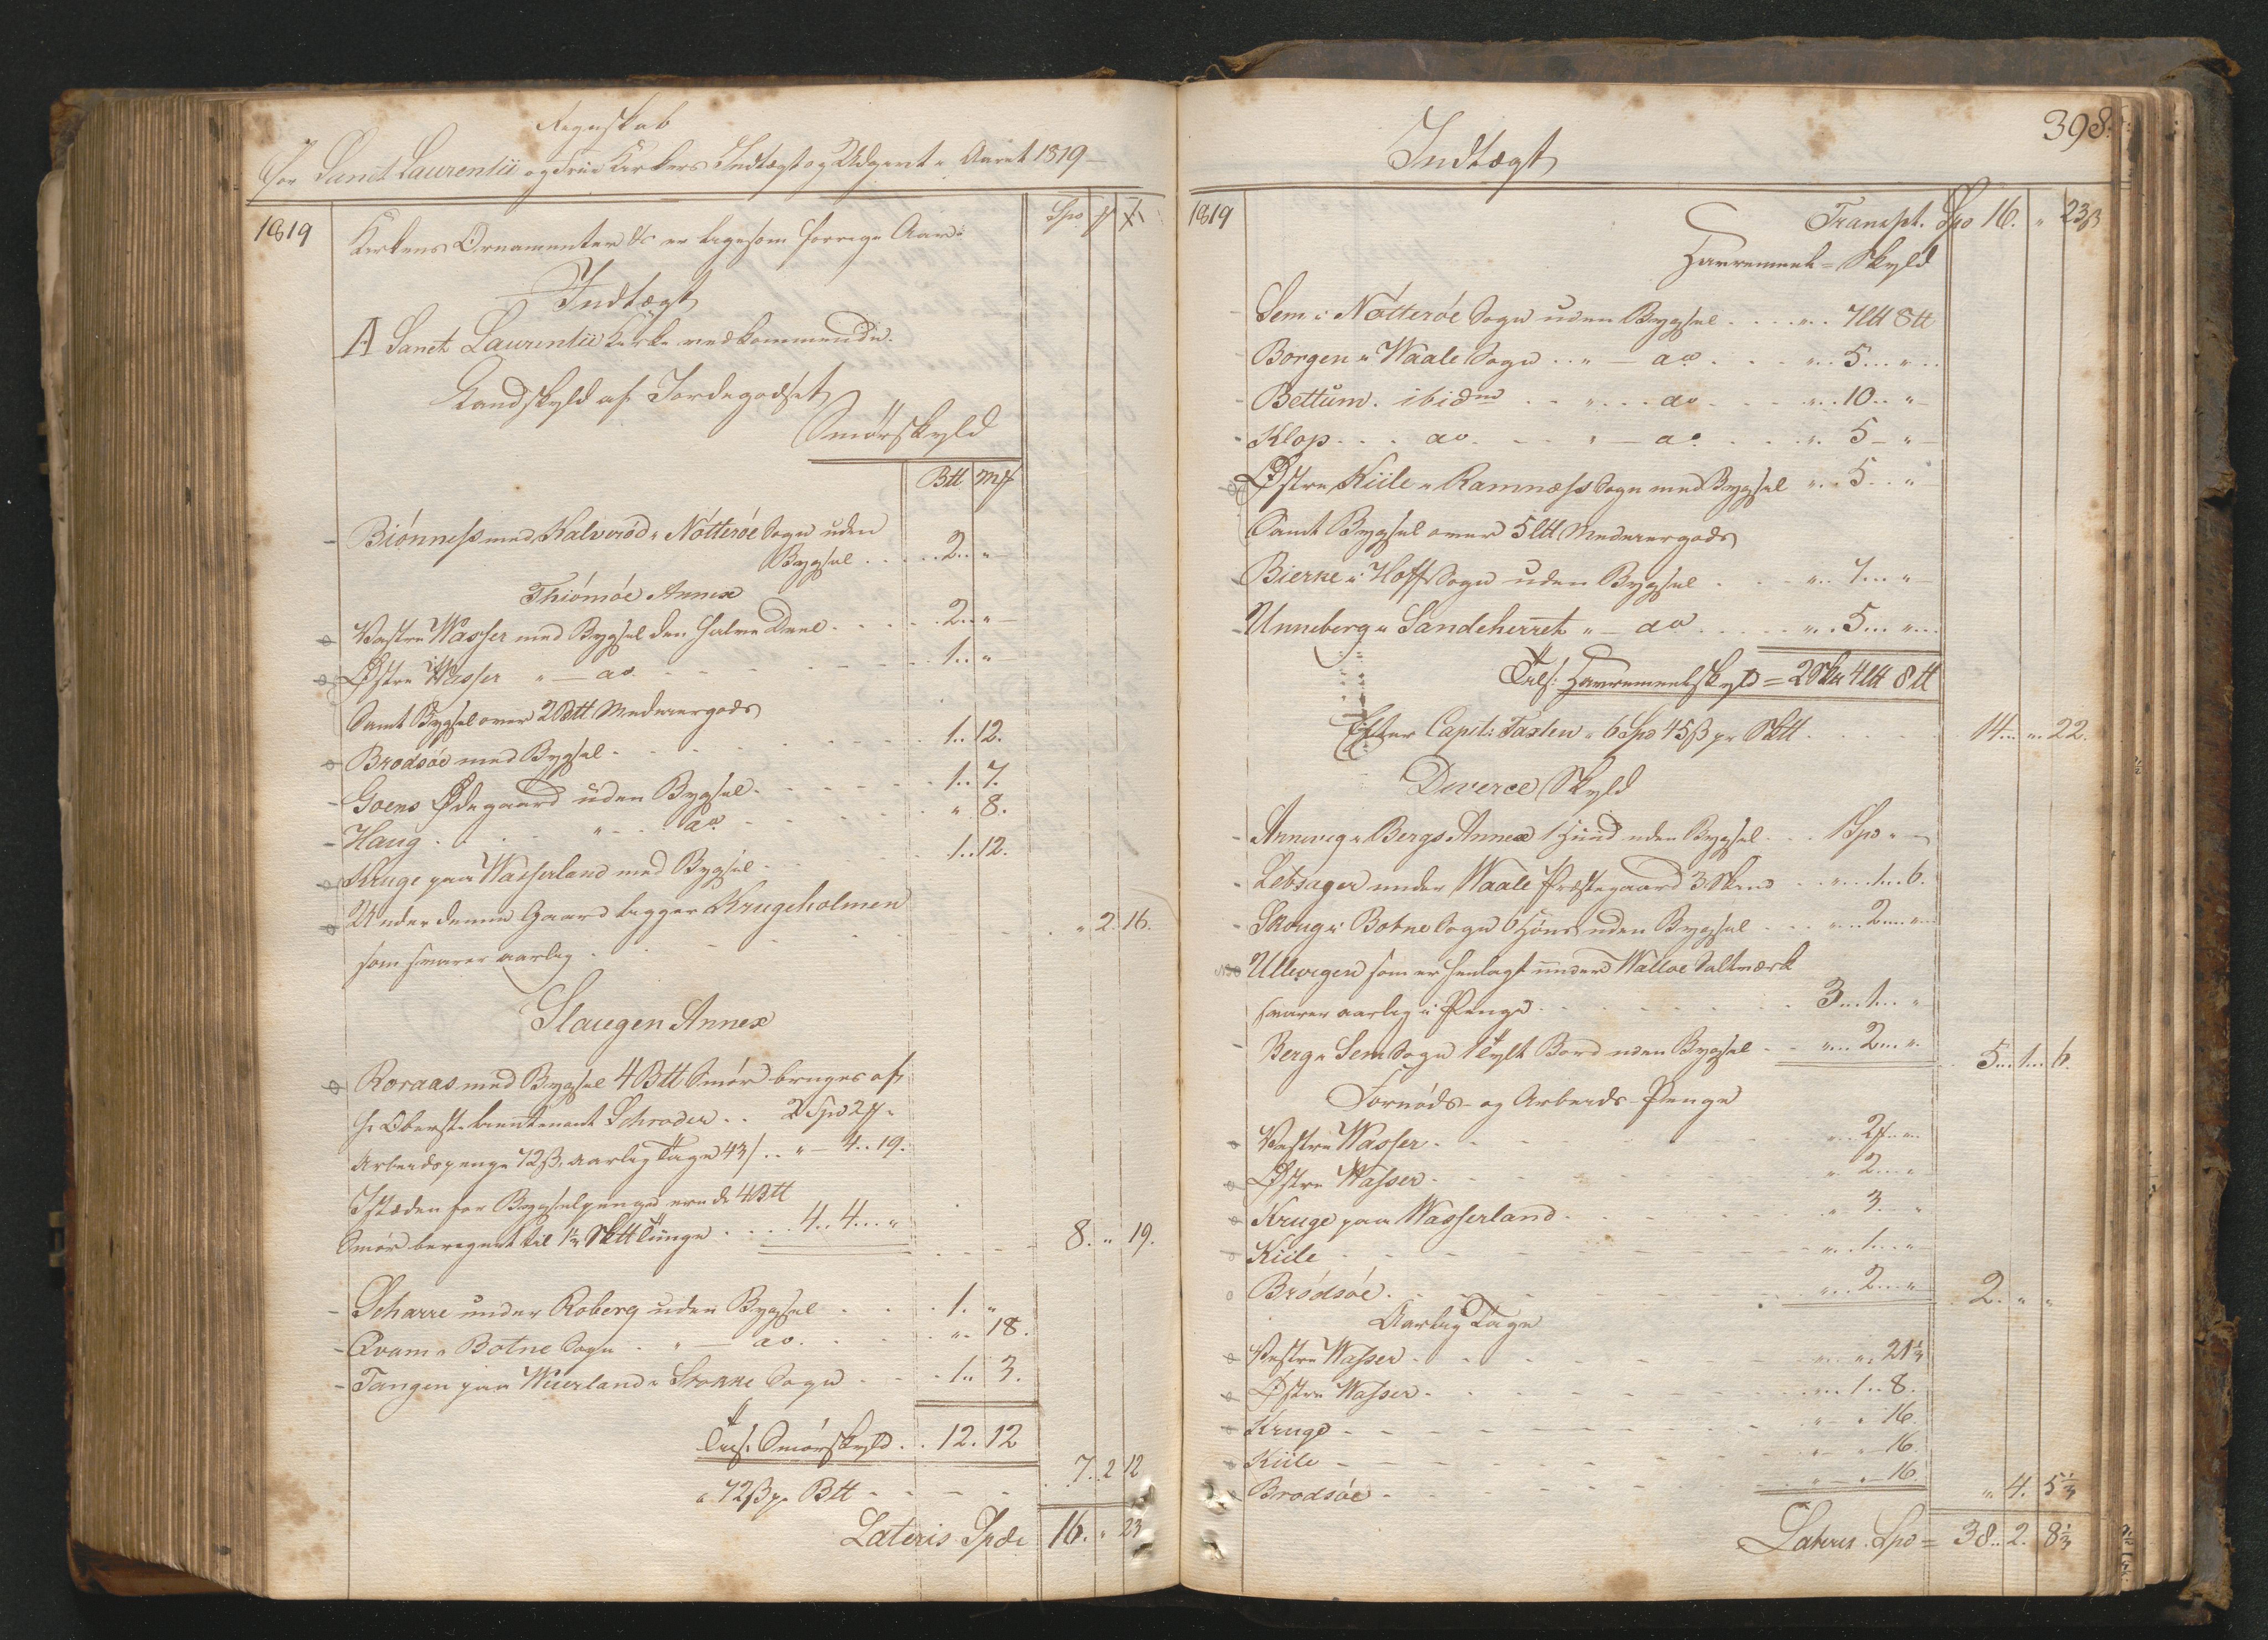 Regnskab
for Sanct Laurentii og Frue Kirkers Indtægt og Udgivt i Aaret 1819
1819
Spd
Kirkens Ornamenter &c er ligesom forrige Aar.
Indtægt
A Sanct Laurentii Kirke vedkommende.
Landskyld af Jordegodset
Smörskyld
Btt Mk
Biönness med Kalverød i Nötteröe Sogn uden
Bygsel .. 2.. "
Thiömöe Annex
Vestre Wasser med Bygsel den halve Deel .. 2.. "
Østre Wasser " — do. 1.. "
Samt Bygsel over 2 Btt Medeiergods
Brodsöe med Bygsel 1.. 12.
Goens Ødegaard uden Bygsel 1.. 7.
Haug " do. " 8.
Kruge paa Wasserland med Bygsel 1.. 12.
Under denne Gaard ligger Krugeholmen
som svarer aarlig " 2. 16.
Slaugen Annex
Roraas med Bygsel 4 Btt Smör bruges af
Hr Oberstlieutenant Schroder .. 2 Spd 2
Arbeidspenge 72 ß, aarlig Tage 43 .. " — 4.. 19.
Istæden for Bygselpenge ere de 4 Btt
Smör beregnet til 1½ Sktt Tunge .. 4.. 4.. " 8. " 19.
Scharre under Roberg uden Bygsel 1. "
Qvam i Botne Sogn " — do. " 18.
Tangen paa Weierland i Stokke Sogn 1.. 3.
Tils. Smörskyld .. 12. 12
a 72 ß pr Btt 7. 2 12
Lateris Spd 16. " 23
398.
Indtægt
1819
Transpt. Spd 16. " 23 ß
Havremeel = Skyld
Sem i Nötteröe Sogn uden Bygsel .. 7 Ltt 8 tt
Borgen i Waale Sogn .. " — do. .. 5 .. "
Bettum ibidm .. " .. do .. 10.. "
Klop .. do. .. " — do. .. 5 — "
Østre Kiile i Ramnæss Sogn med Bygsel .. 5 .. "
Samt Bygsel over 5 Ltt Medeiergods
Bierke i Hoff Sogn uden Bygsel .. 7 .. "
Unneberg i Sandeherret " — do .. 5 .. "
Tils: Havremeelskyld = 2 Sktt 4 Ltt 8 tt
Efter Capit: Taxten a 6 Spd 45 ß pr Sktt 14 .. " 22.
Diverce Skyld
Anneveg i Bergs Annex 1 Huud uden Bygsel .. 1 Spd " —
Lebsager under Waale Præstegaard 3 Skind .. " .. 1 .. 6.
Skoug i Botne Sogn 6 Höns uden Bygsel .. " .. 2 .. "
Ullevigen som er henlagt under Walloe Saltværk
svarer aarlig i Penge .. 3 .. 1 .. "
Berg i Sem Sogn 1 Tylt Bord uden Bygsel .. " .. 2 .. " 5 .. 1 .. 6.
Fornöds- og Arbeids-Penge
Vestre Wasser .. " 2 .. "
Østre Wasser .. " 2 .. "
Kruge paa Wasserland .. " 3 .. "
Kiile .. " 1 .. "
Brödsöe .. " 2 .. " 2. " "
Aarlig Tage
Vestre Wasser .. " " 21⅓
Østre Wasser .. " 1 .. 8.
Kruge " " 16.
Kiile " " 16.
Brodsöe " " 16. " 4. 5⅓
Lateris Spd = 38.. 2. 8⅓